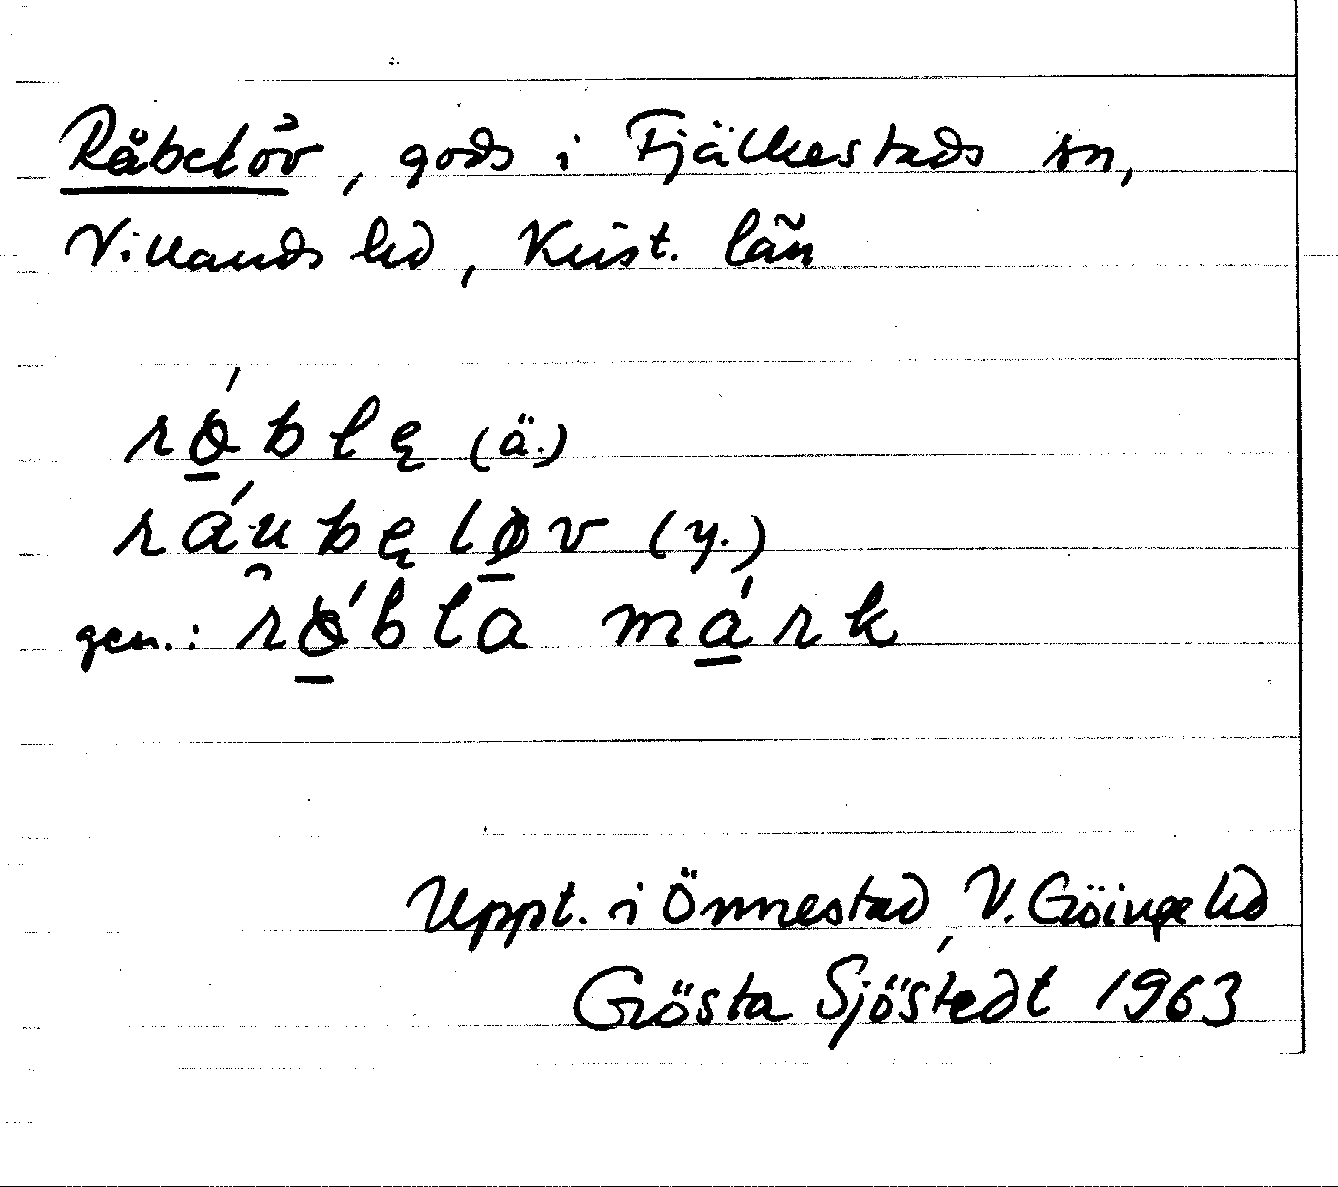 Råbelöv, gods i Fjälkestads sn,
Villands hd, Krist. län
rǿ̲blę (ä.)
ráubęlø̲v (y.)
gen.: rǿ̲bla má̲rk
Uppt. i Önnestad, V. Göinge hd
Gösta Sjöstedt 1963